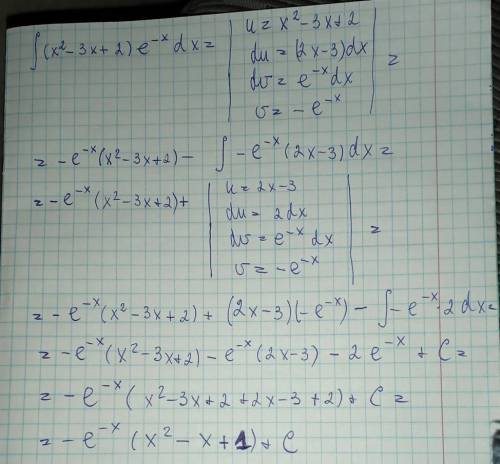 ∫(x²-3x+2) e^{-x} dx = | u = x²-3x+2
du = (2x-3)dx
dv = e^{-x}dx
v = -e^{-x} | =
= -e^{-x}(x²-3x+2) - ∫ -e^{-x}(2x-3)dx =
= -e^{-x}(x²-3x+2) + | u = 2x-3
du = 2dx
dv = e^{-x} dx
v = -e^{-x} | =
= -e^{-x}(x²-3x+2) + (2x-3)(-e^{-x}) - ∫-e^{-x}·2dx =
= -e^{-x}(x²-3x+2) - e^{-x}(2x-3) - 2e^{-x} + C =
= -e^{-x}(x²-3x+2+2x-3+2) + C =
= -e^{-x}(x²-x+1)+C